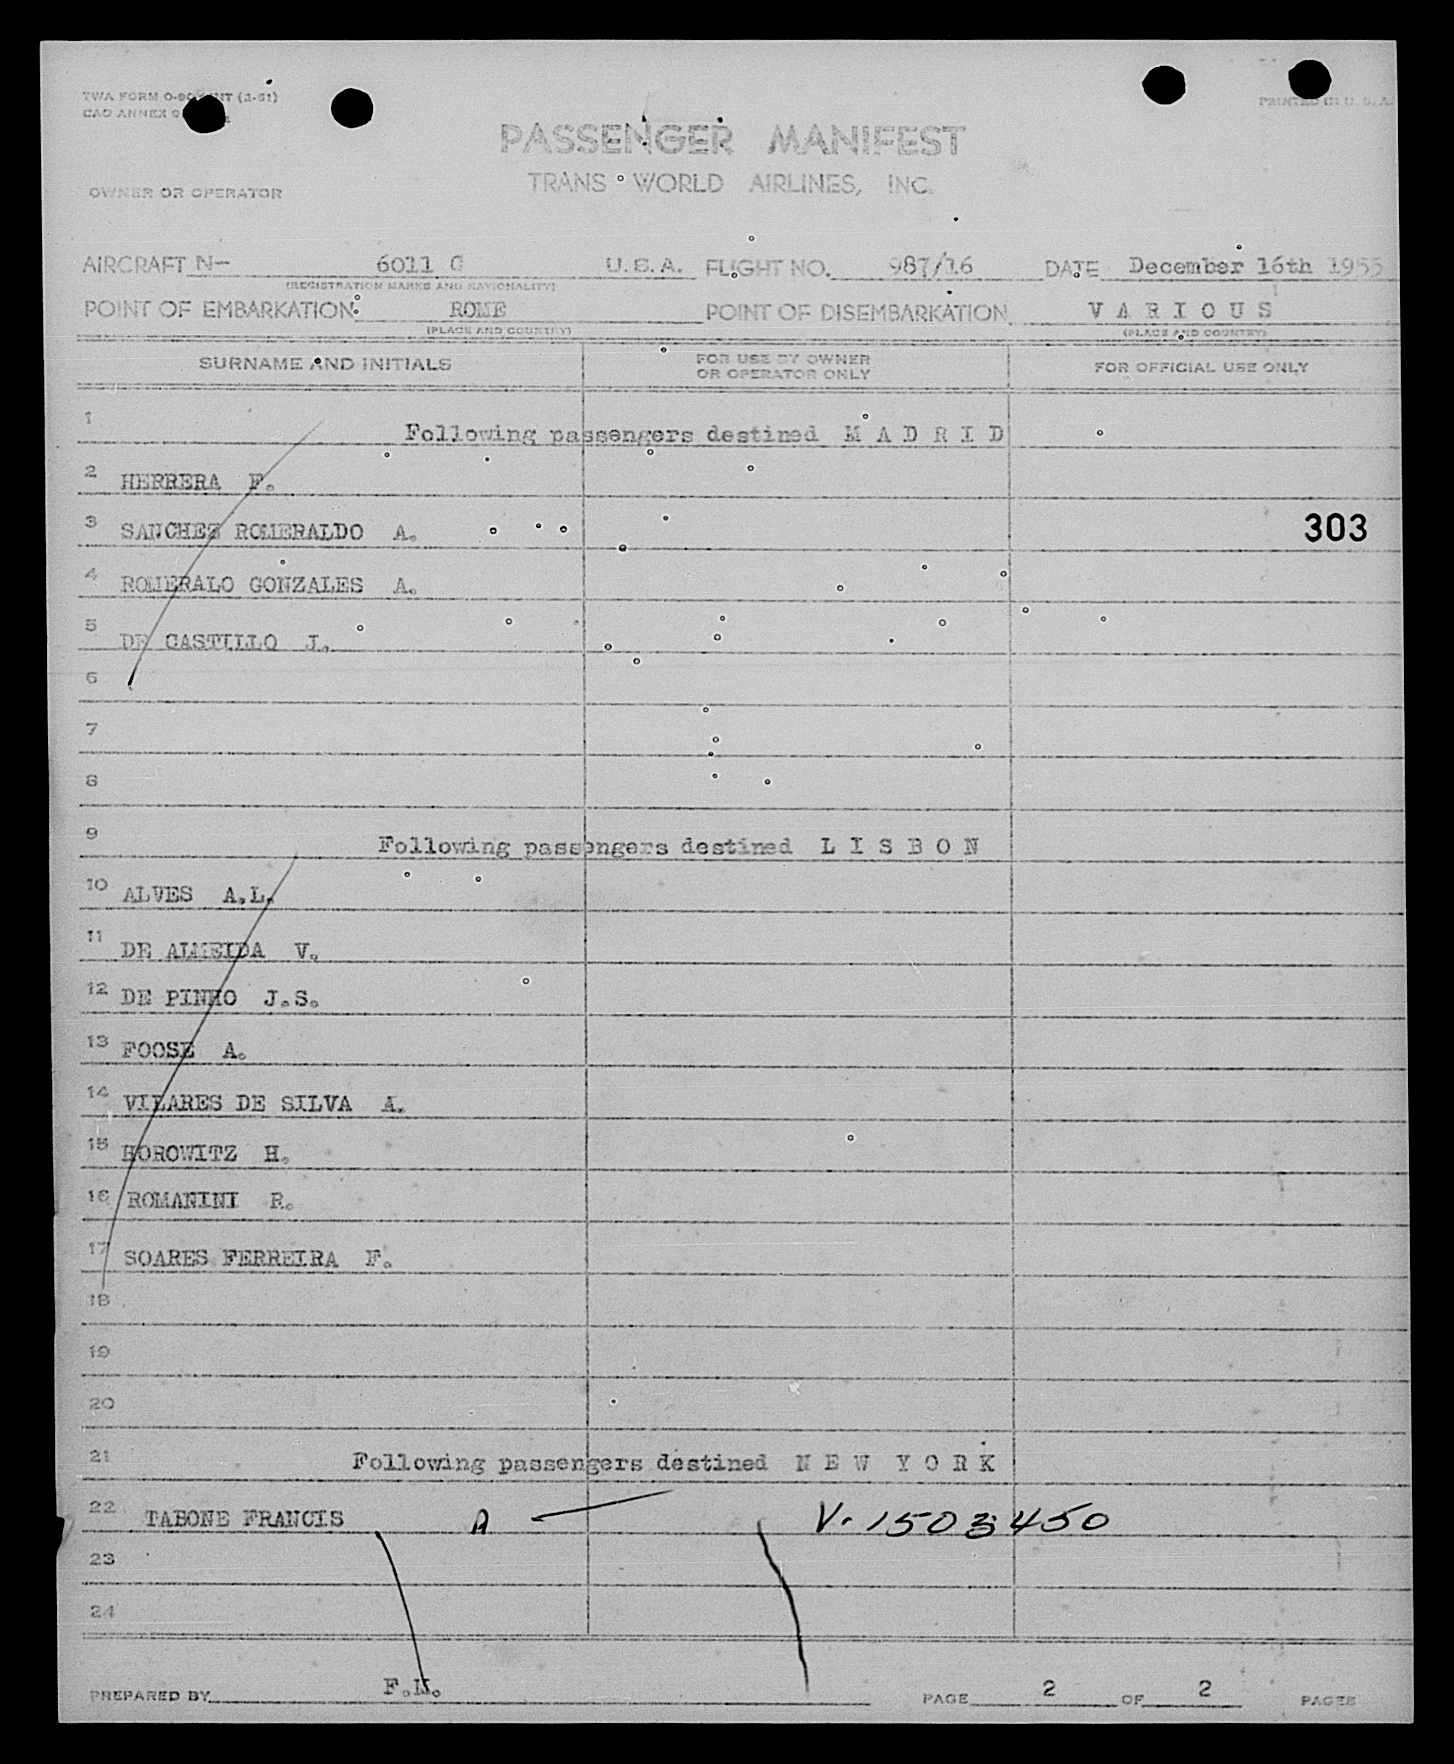 TWA FORM O-90 INT (2-51)
CAO ANNEX 9
PRINTED IN U. S. A.
PASSENGER MANIFEST
OWNER OR OPERATOR
TRANS WORLD AIRLINES, INC.
AIRCRAFT N- 6011 C U.S.A. FLIGHT NO. 987/16 DATE December 16th 1955
(REGISTRATION MARKS AND NATIONALITY)
POINT OF EMBARKATION ROME POINT OF DISEMBARKATION V A R I O U S
(PLACE AND COUNTRY) (PLACE AND COUNTRY)
SURNAME AND INITIALS FOR USE BY OWNER OR OPERATOR ONLY FOR OFFICIAL USE ONLY
1 Following passengers destined M A D R I D
2 HERRERA F.
3 SANCHEZ ROMERALDO A. 303
4 ROMERALO GONZALES A.
5 DE CASTILLO J.
6
7
8
9 Following passengers destined L I S B O N
10 ALVES A.L.
11 DE ALMEIDA V.
12 DE PINHO J.S.
13 FOOSE A.
14 VILARES DE SILVA A.
15 HOROWITZ H.
16 ROMANINI R.
17 SOARES FERREIRA F.
18
19
20
21 Following passengers destined N E W Y O R K
22 TABONE FRANCIS A — V. 1503450
23
24
PREPARED BY F.M. PAGE 2 OF 2 PAGES